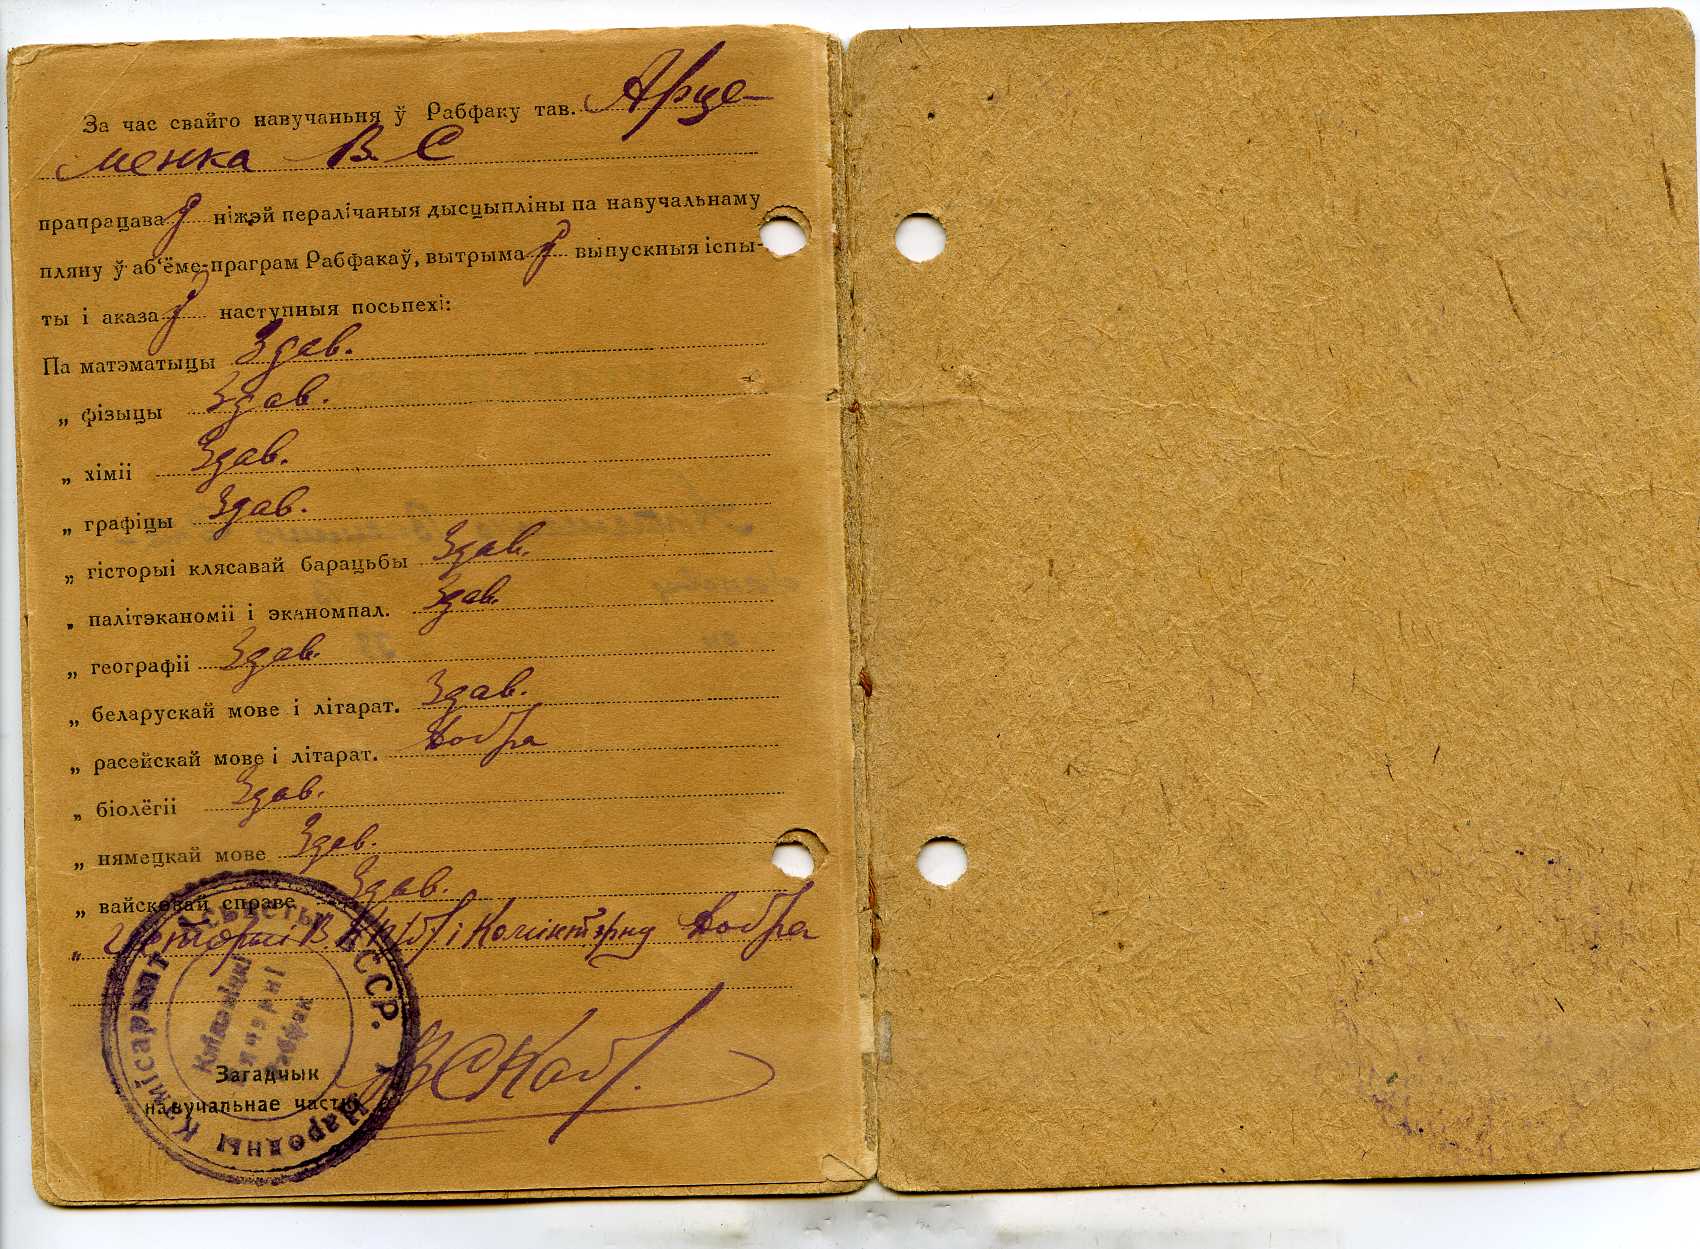 За час свайго навучаньня ў Рабфаку тав. Арце-
менка В. С
прапрацаваў ніжэй пералічаныя дысцыпліны па навучальнаму
пляну ў аб'ёме праграм Рабфакаў, вытрымаў выпускныя іспы-
ты і аказаў наступныя посьпехі:
Па матэматыцы Здав.
„ фізыцы Здав.
„ хіміі Здав.
„ графіцы Здав.
„ гісторыі клясавай барацьбы Здав.
„ палітэканоміі і эканомпал. Здав.
„ географіі Здав.
„ беларускай мове і літарат. Здав.
„ расейскай мове і літарат. добра
„ біолёгіі Здав.
„ нямецкай мове Здав.
„ вайсковай справе Здав.
„ гісторыі і Комінтэрну добра
Народны Камісарыят Асьветы БССР.
Рабфак
Загадчык
навучальнае часткі